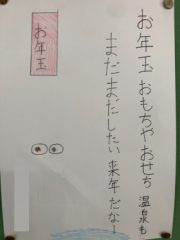 お年玉おもちやおせち温泉も
まだまだしたい来年だなー
お年玉